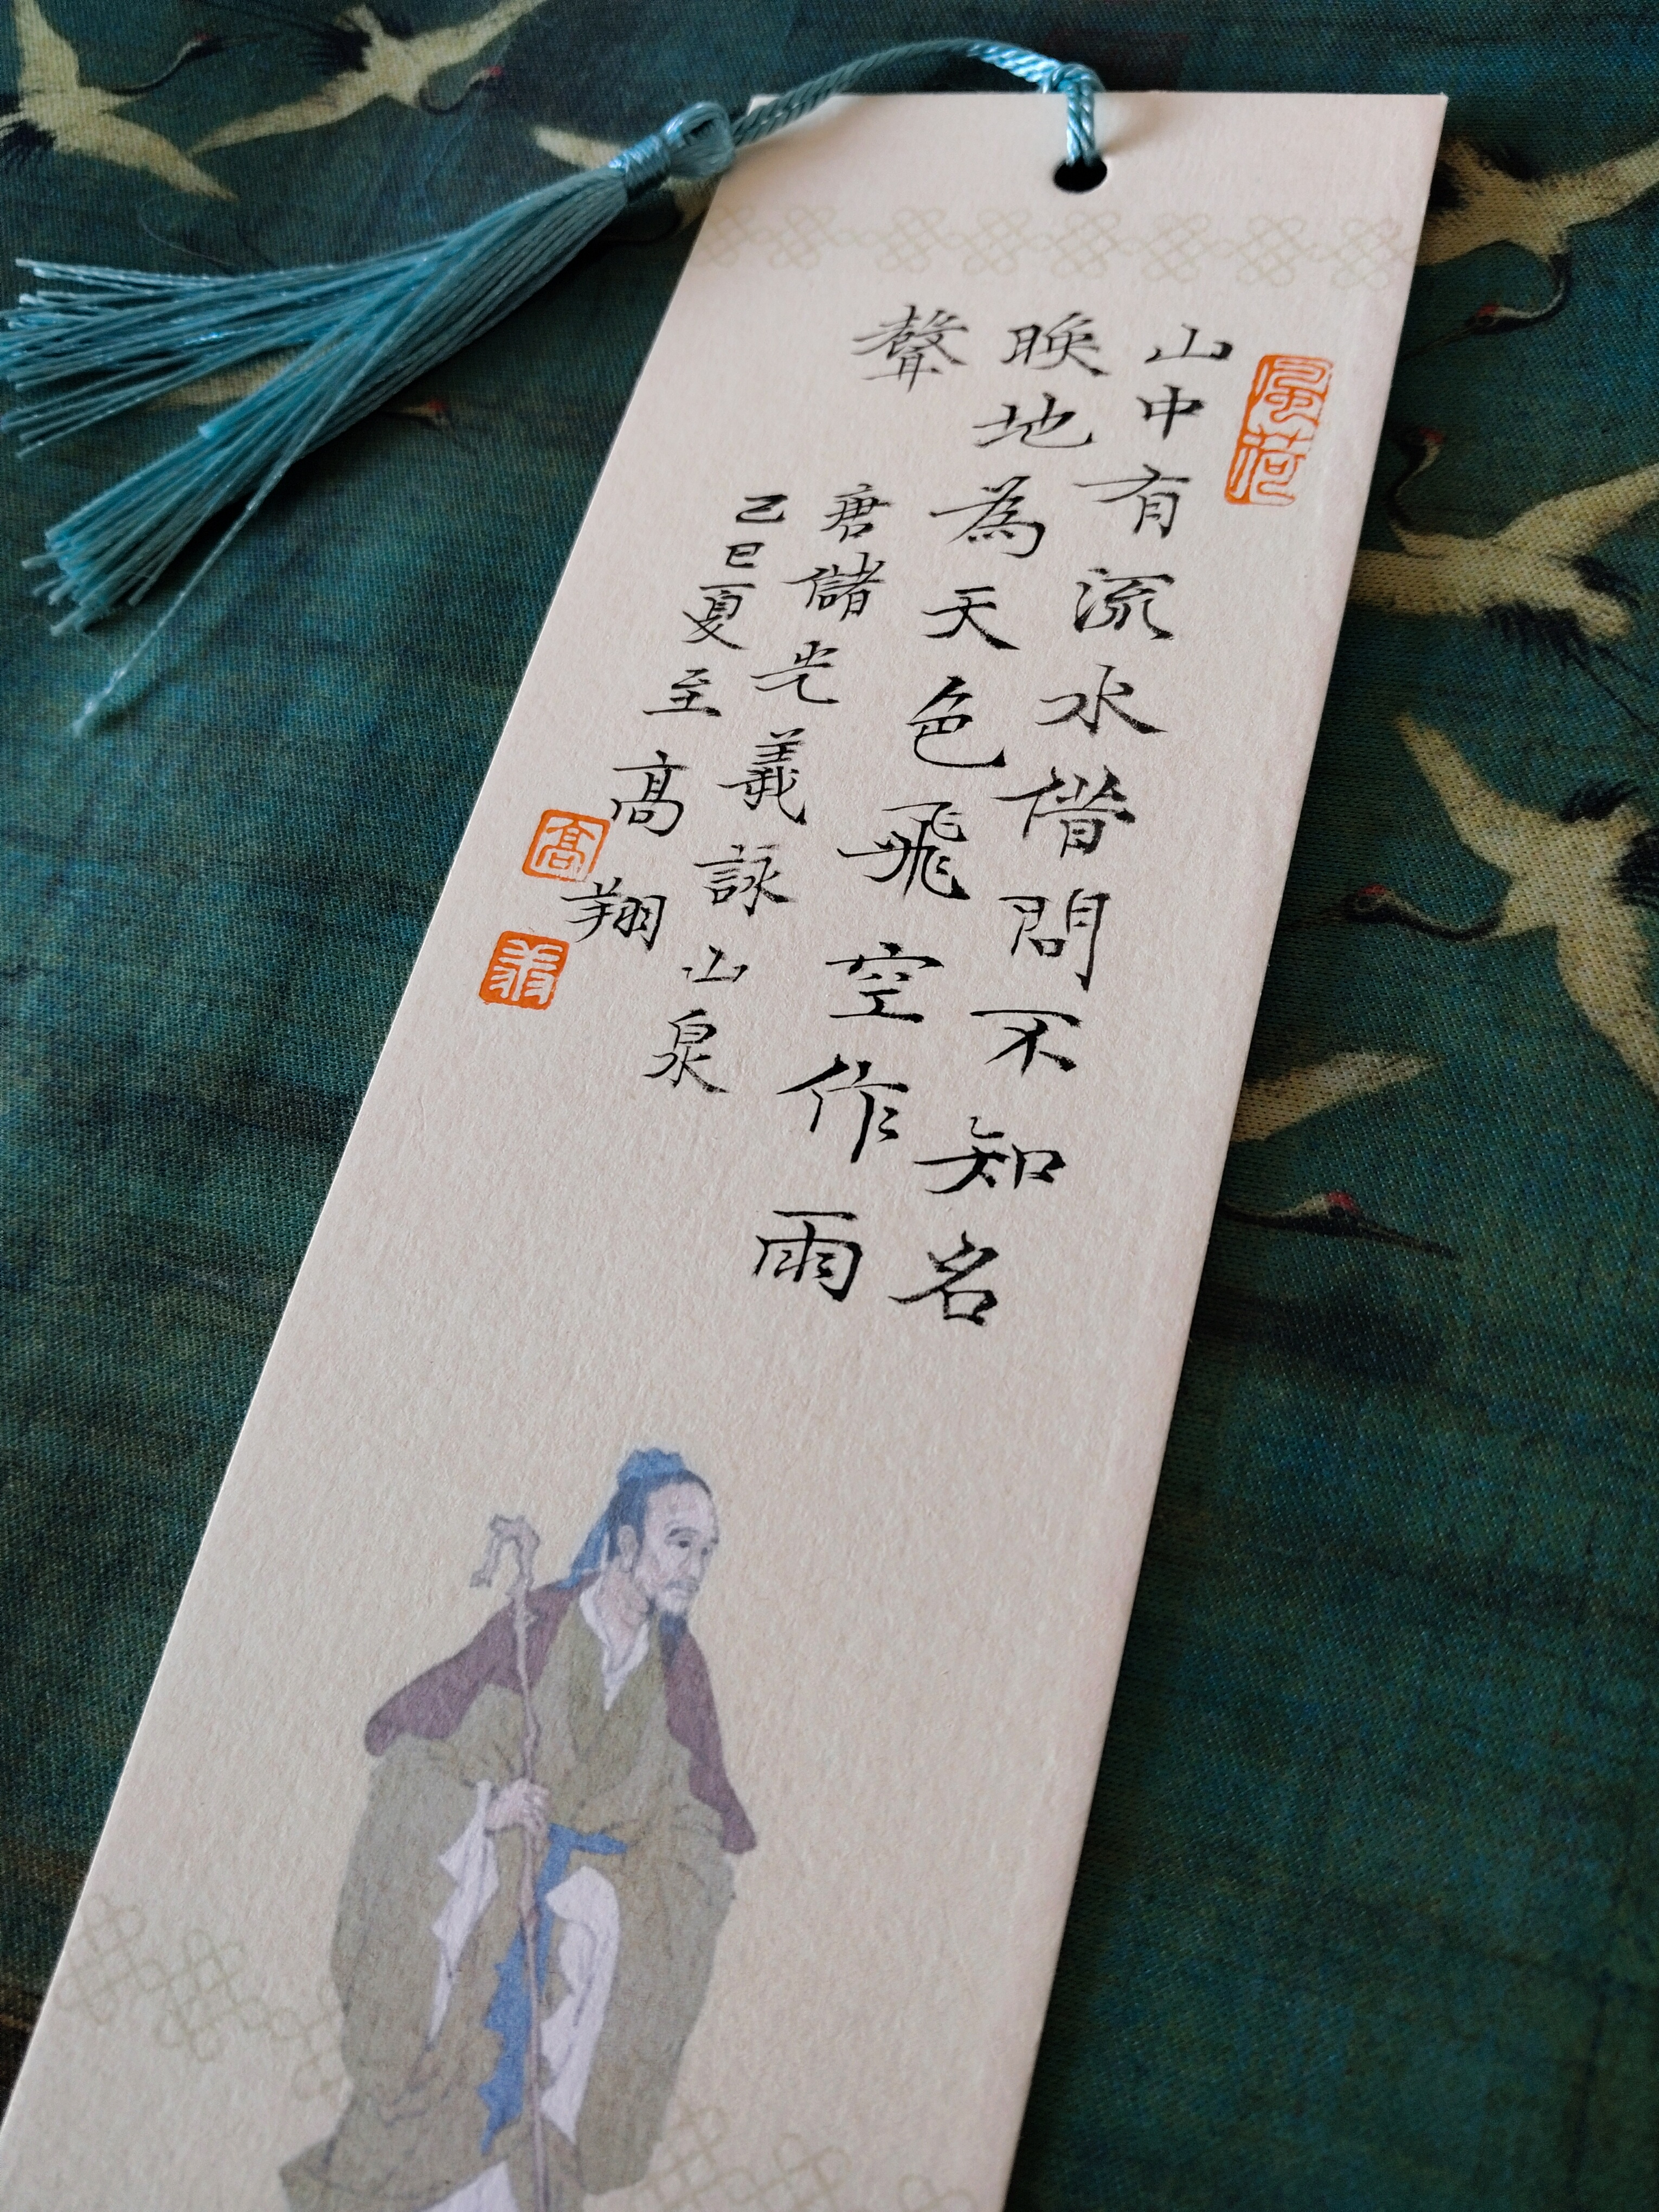 風荷
山中有流水借問不知名
映地為天色飛空作雨
聲
唐儲光羲詠山泉
乙巳夏至髙翔
髙
翔